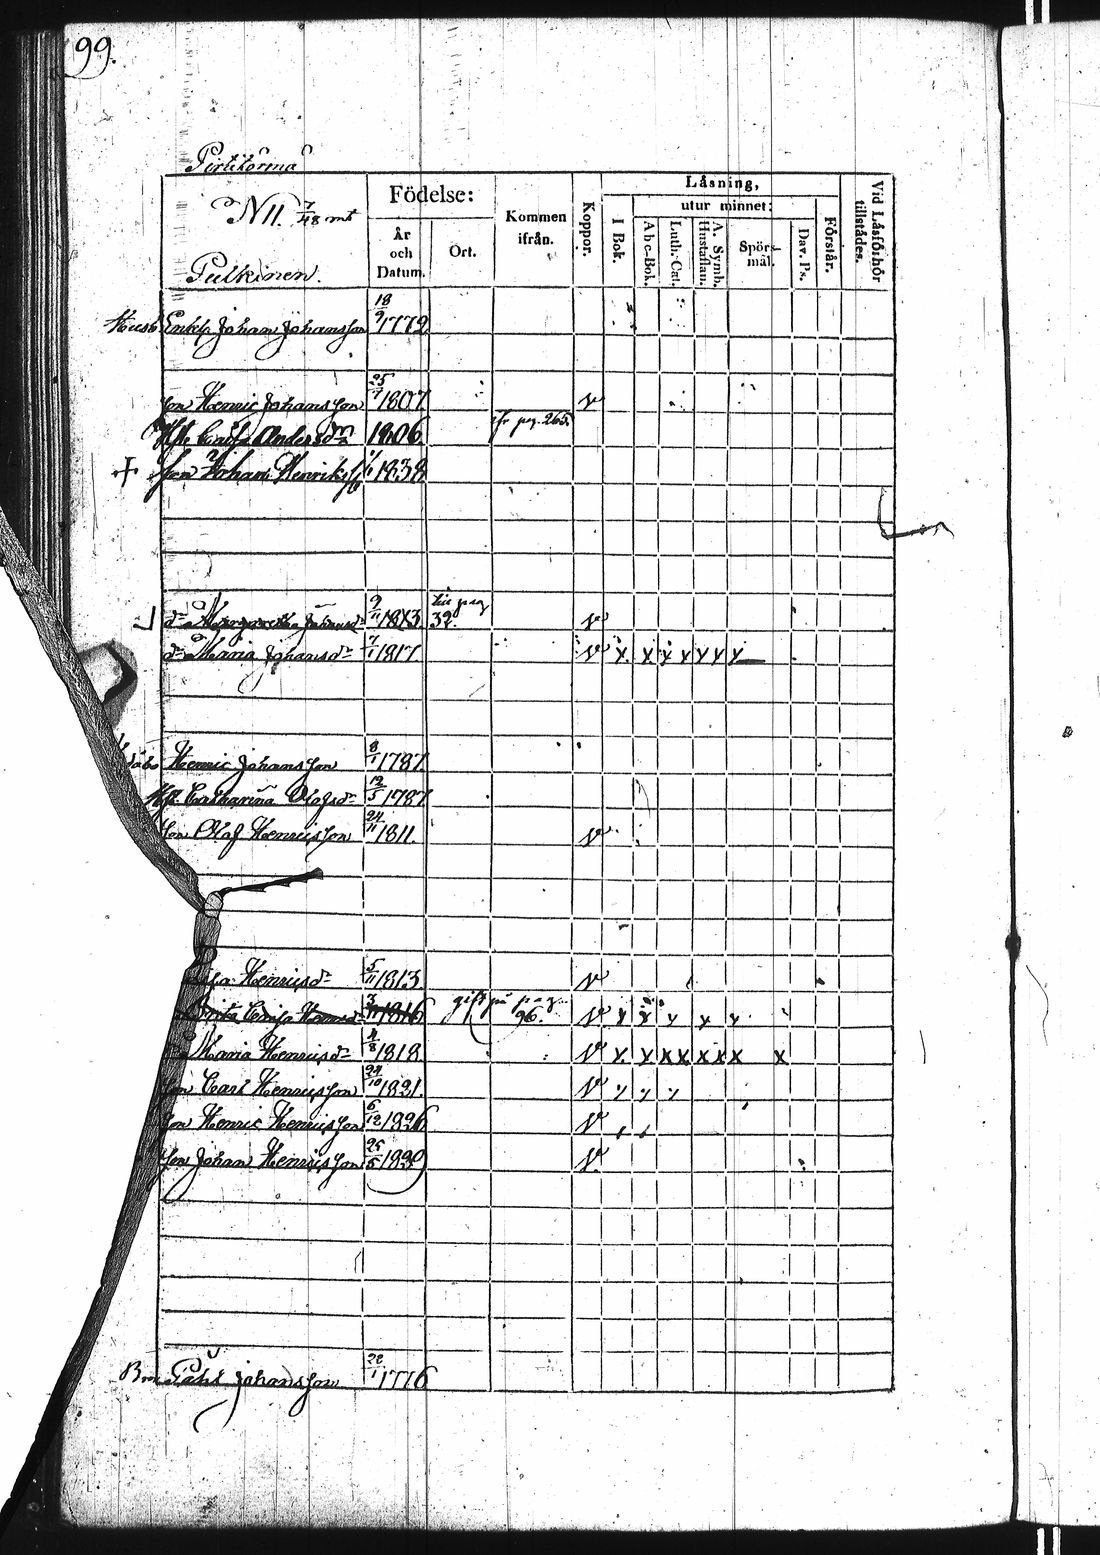 99.
Pertitörmä
N 11. 7/48 mt
Pulkinen.
Födelse:
År och Datum.
Ort.
Kommen ifrån.
Koppor.
Låsning,
I Bok.
utur minnet:
Abc-Bok.
Luth. Cat.
A. Symb. Hustaflan.
Spörs-mål.
Dav. Ps.
Förstår.
Vid Låsförhör tillstådes.
Husb Enkl. Johan Johansson 18/9 1772
son Henric Johansson 25/7 1807 v
Hst. Andersdr 1806 fr pag. 265.
+ son Johan Henriks 1/1 1838
dr Margaretha Johansdr 9/11 1813. pag 32. v
dr Maria Johansdr 7/1 1817 v x x x x x x x
Henric Johansson 8/1 1787
Hst. Catharina Olofsdr 12/5 1787
son Olof Henricsson 24/11 1811. v
Henricsdr 5/11 1813. v
Brita Caisa 1816 gift på pag 96. v x x x x x
Maria Henricsdr 4/8 1818. v x x x x x x x x
son Carl Henricsson 24/10 1821. v
son Henric Henricsson 6/12 1826 v
son Johan Henricsson 25/5 1829 v
Påhl Johansson 22/1 1776